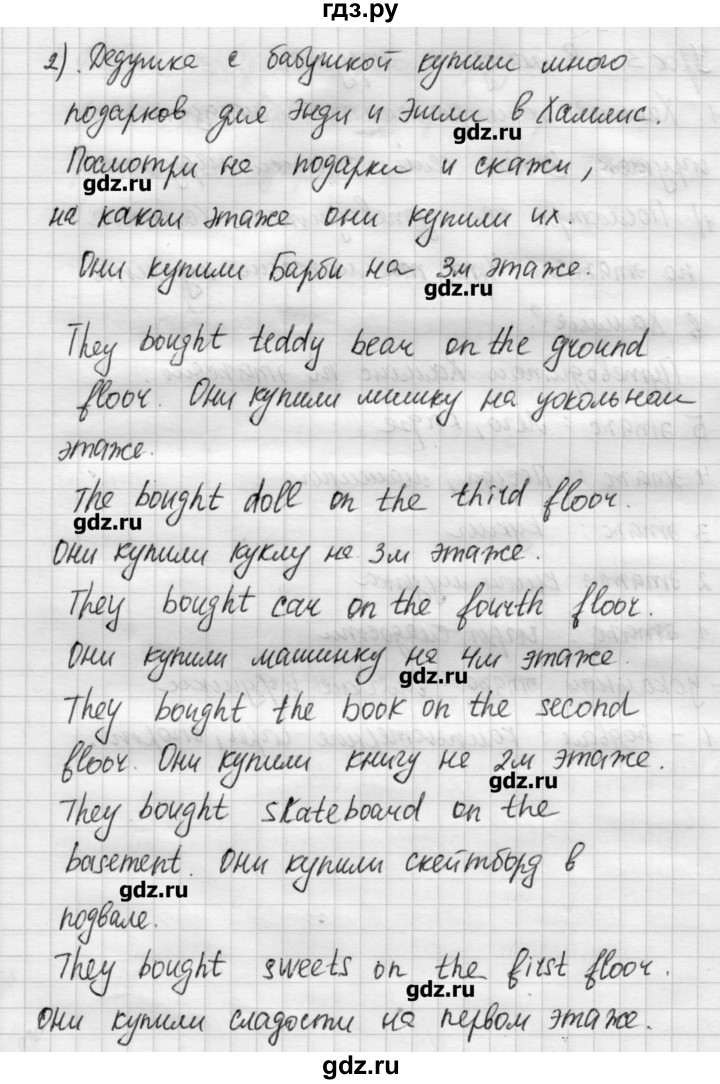 гдз.ру
2). Дедушка с бабушкой купили много
подарков для Энди и Эшли в Хамлис.
gdz.ru
Посмотри на подарки и скажи,
gdz.ru
на каком этаже они купили их.
Они купили Барби на 3м этаже.
gdz.ru
They bought teddy bear on the ground
floor. Они купили мишку на цокольном
этаже.
The bought doll on the third floor.
gdz.ru
Они купили куклу на 3м этаже.
They bought car on the fourth floor.
Они купили машинку на 4м этаже.
gdz.ru
They bought the book on the second
floor. Они купили книгу не 2м этаже.
gdz.ru
They bought skateboard on the
basement. Они купили скейтборд в
gdz.ru
подвале.
They bought sweets on the first floor.
gdz.ru
Они купили сладости на первом этаже.
gdz.ru